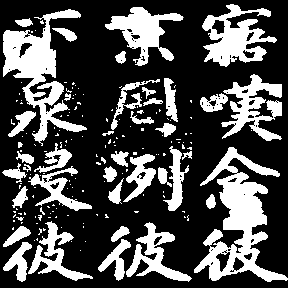 寤嘆念彼
京周洌彼
下泉浸彼